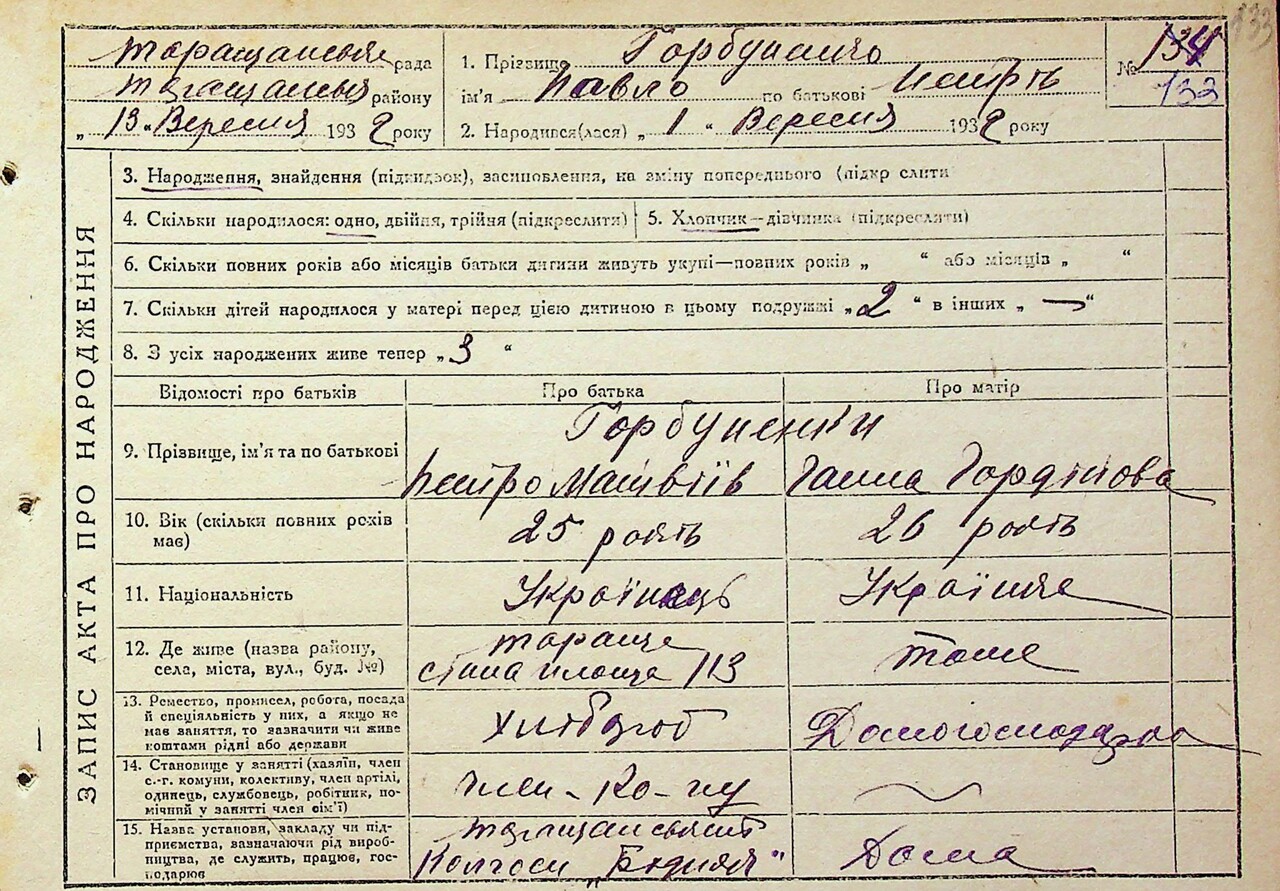 133
Таращанська рада
Таращанська району
„ 13 “ Вересня 1932 року
1. Прізвище Горбуненко
ім'я Павло по батькові Петрів
2. Народився(лася) „ 1 “ Вересня 1932 року
№ 134
133
ЗАПИС АКТА ПРО НАРОДЖЕННЯ
3. Народження, знайдення (підкидьок), засиновлення, на зміну попереднього (підкр слити
4. Скільки народилося: одно, двійня, трійня (підкреслити)
5. Хлопчик—дівчинка (підкресляти)
6. Скільки повних років або місяців батьки дитини живуть укупі—повних років „ “ або місяців „ “
7. Скільки дітей народилося у матері перед цією дитиною в цьому подружжі „ 2 “ в інших „ — “
8. З усіх народжених живе тепер „ 3 “
Відомості про батьків
Про батька
Про матір
9. Прізвище, ім'я та по батькові
Горбуненки
Петро Матвіїв
Ганна Гордіїова
10. Вік (скільки повних років
має)
25 років
26 років
11. Національність
Українець
Українка
12. Де живе (назва району,
села, міста, вул., буд. №)
Тараща
площа 113
Тоже
13. Ремество, промисел, робота, посада
й спеціальність у них, а якщо не
має заняття, то зазначити чи живе
коштами рідні або держави
Хлібороб
Домогосподарка
14. Становище у занятті (хазяїн, член
с.-г. комуни, колективу, член артілі,
одинець, службовець, робітник, по-
мічний у занятті член сім'ї)
член - Ко-пу
15. Назва установи, закладу чи під-
приємства, зазначаючи рід вироб-
ництва, де служить, працює, гос-
подарює
Таращанський
Колгосп „Бідняк“
Дома